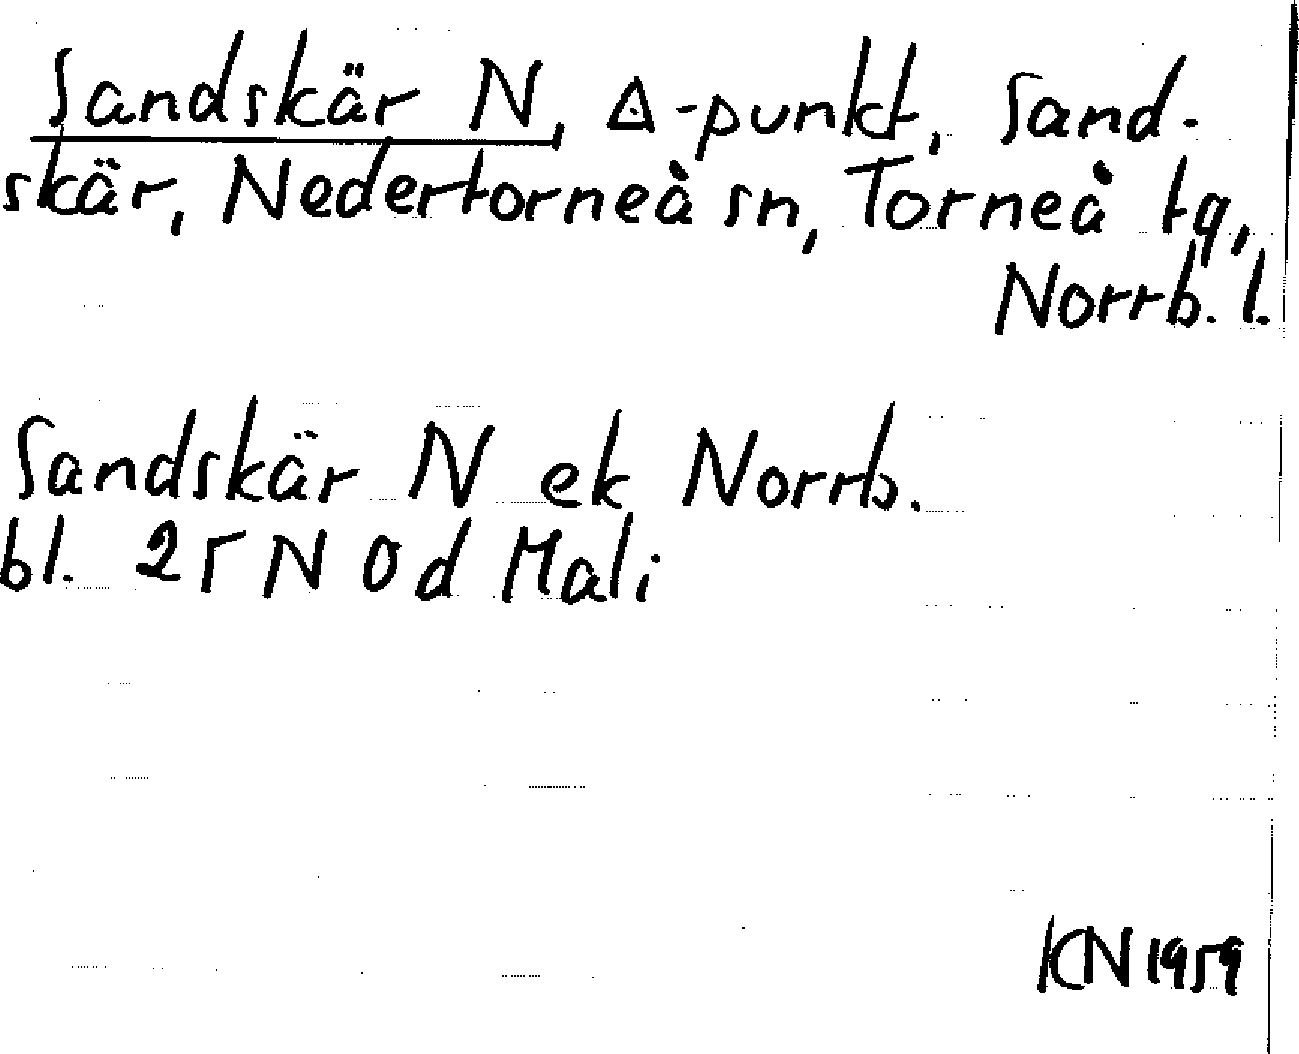 Sandskär N, Δ-punkt, Sand-
skär, Nedertorneå sn, Torneå tg,
Norrb. l.
Sandskär N ek Norrb.
bl. 25 N Od Mali
KN 1959